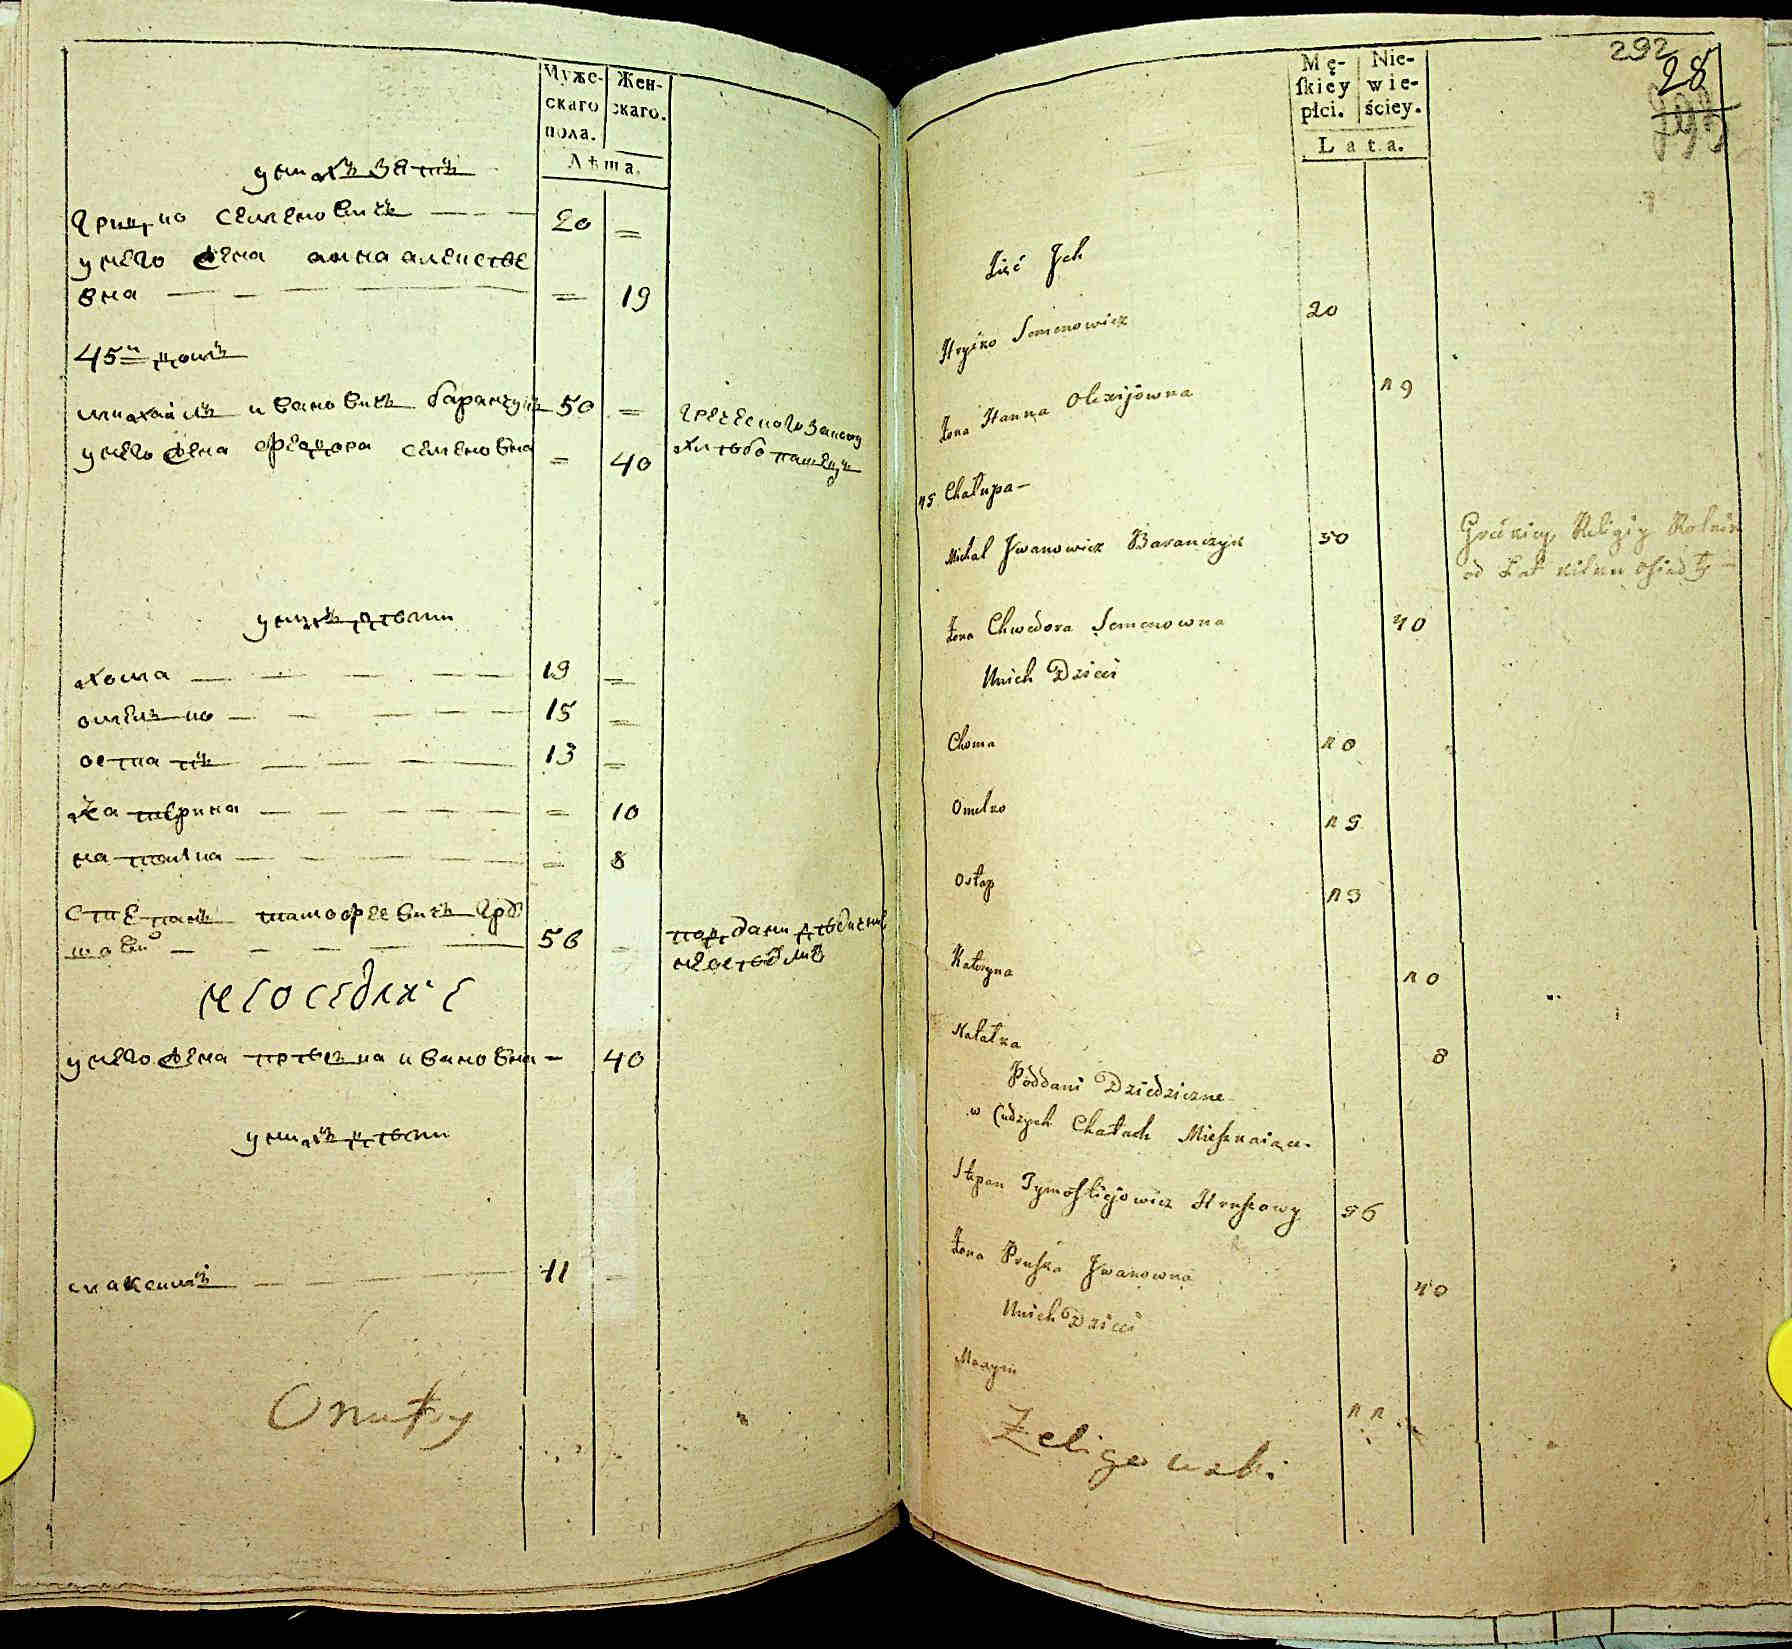 Муже-
скаго
пола.
Жен-
скаго.
Лѣта.
у нихъ зять
грицко семеновичъ 20 =
у него жена анна алексѣе
вна = 19
45й домъ
михайлъ ивановичъ баранчукъ 50 =
греческого закону
у него жена федора семеновна = 40
хлѣбопашецъ
у нихъ дѣти
хома 19 =
омелько 15 =
остапъ 13 =
катерина = 10
наталка = 8
степанъ тимофеевичъ гру
шовий 56
неоседлые
у него жена пръська ивановна = 40
у нихъ дѣти
максимъ 11
Onufry
292
28
Mę-
skiey
płci.
Nie-
wie-
ściey.
Lata.
Zięć Jch
Hryćko Semenowicz 20
Żona Hanna Olexijówna 19
45 Chałupa
Michał Jwanowicz Baranczyk 50
Gréckiey Religiy Rolnik
od Lat kilku osiadły
Żona Chwedora Semenowna 40
Unich Dzieci
Choma
Omelko 15
Ostap 13
Kateryna 10
Natałka 8
Poddani Dziedziczne
w Cudzych Chatach Mieszkaiące
Stepan Tymofiejowicz Hruszowy 56
Żona Pruska Jwanowna 40
Unich Dzieci
Maxym 11
Zeligowski